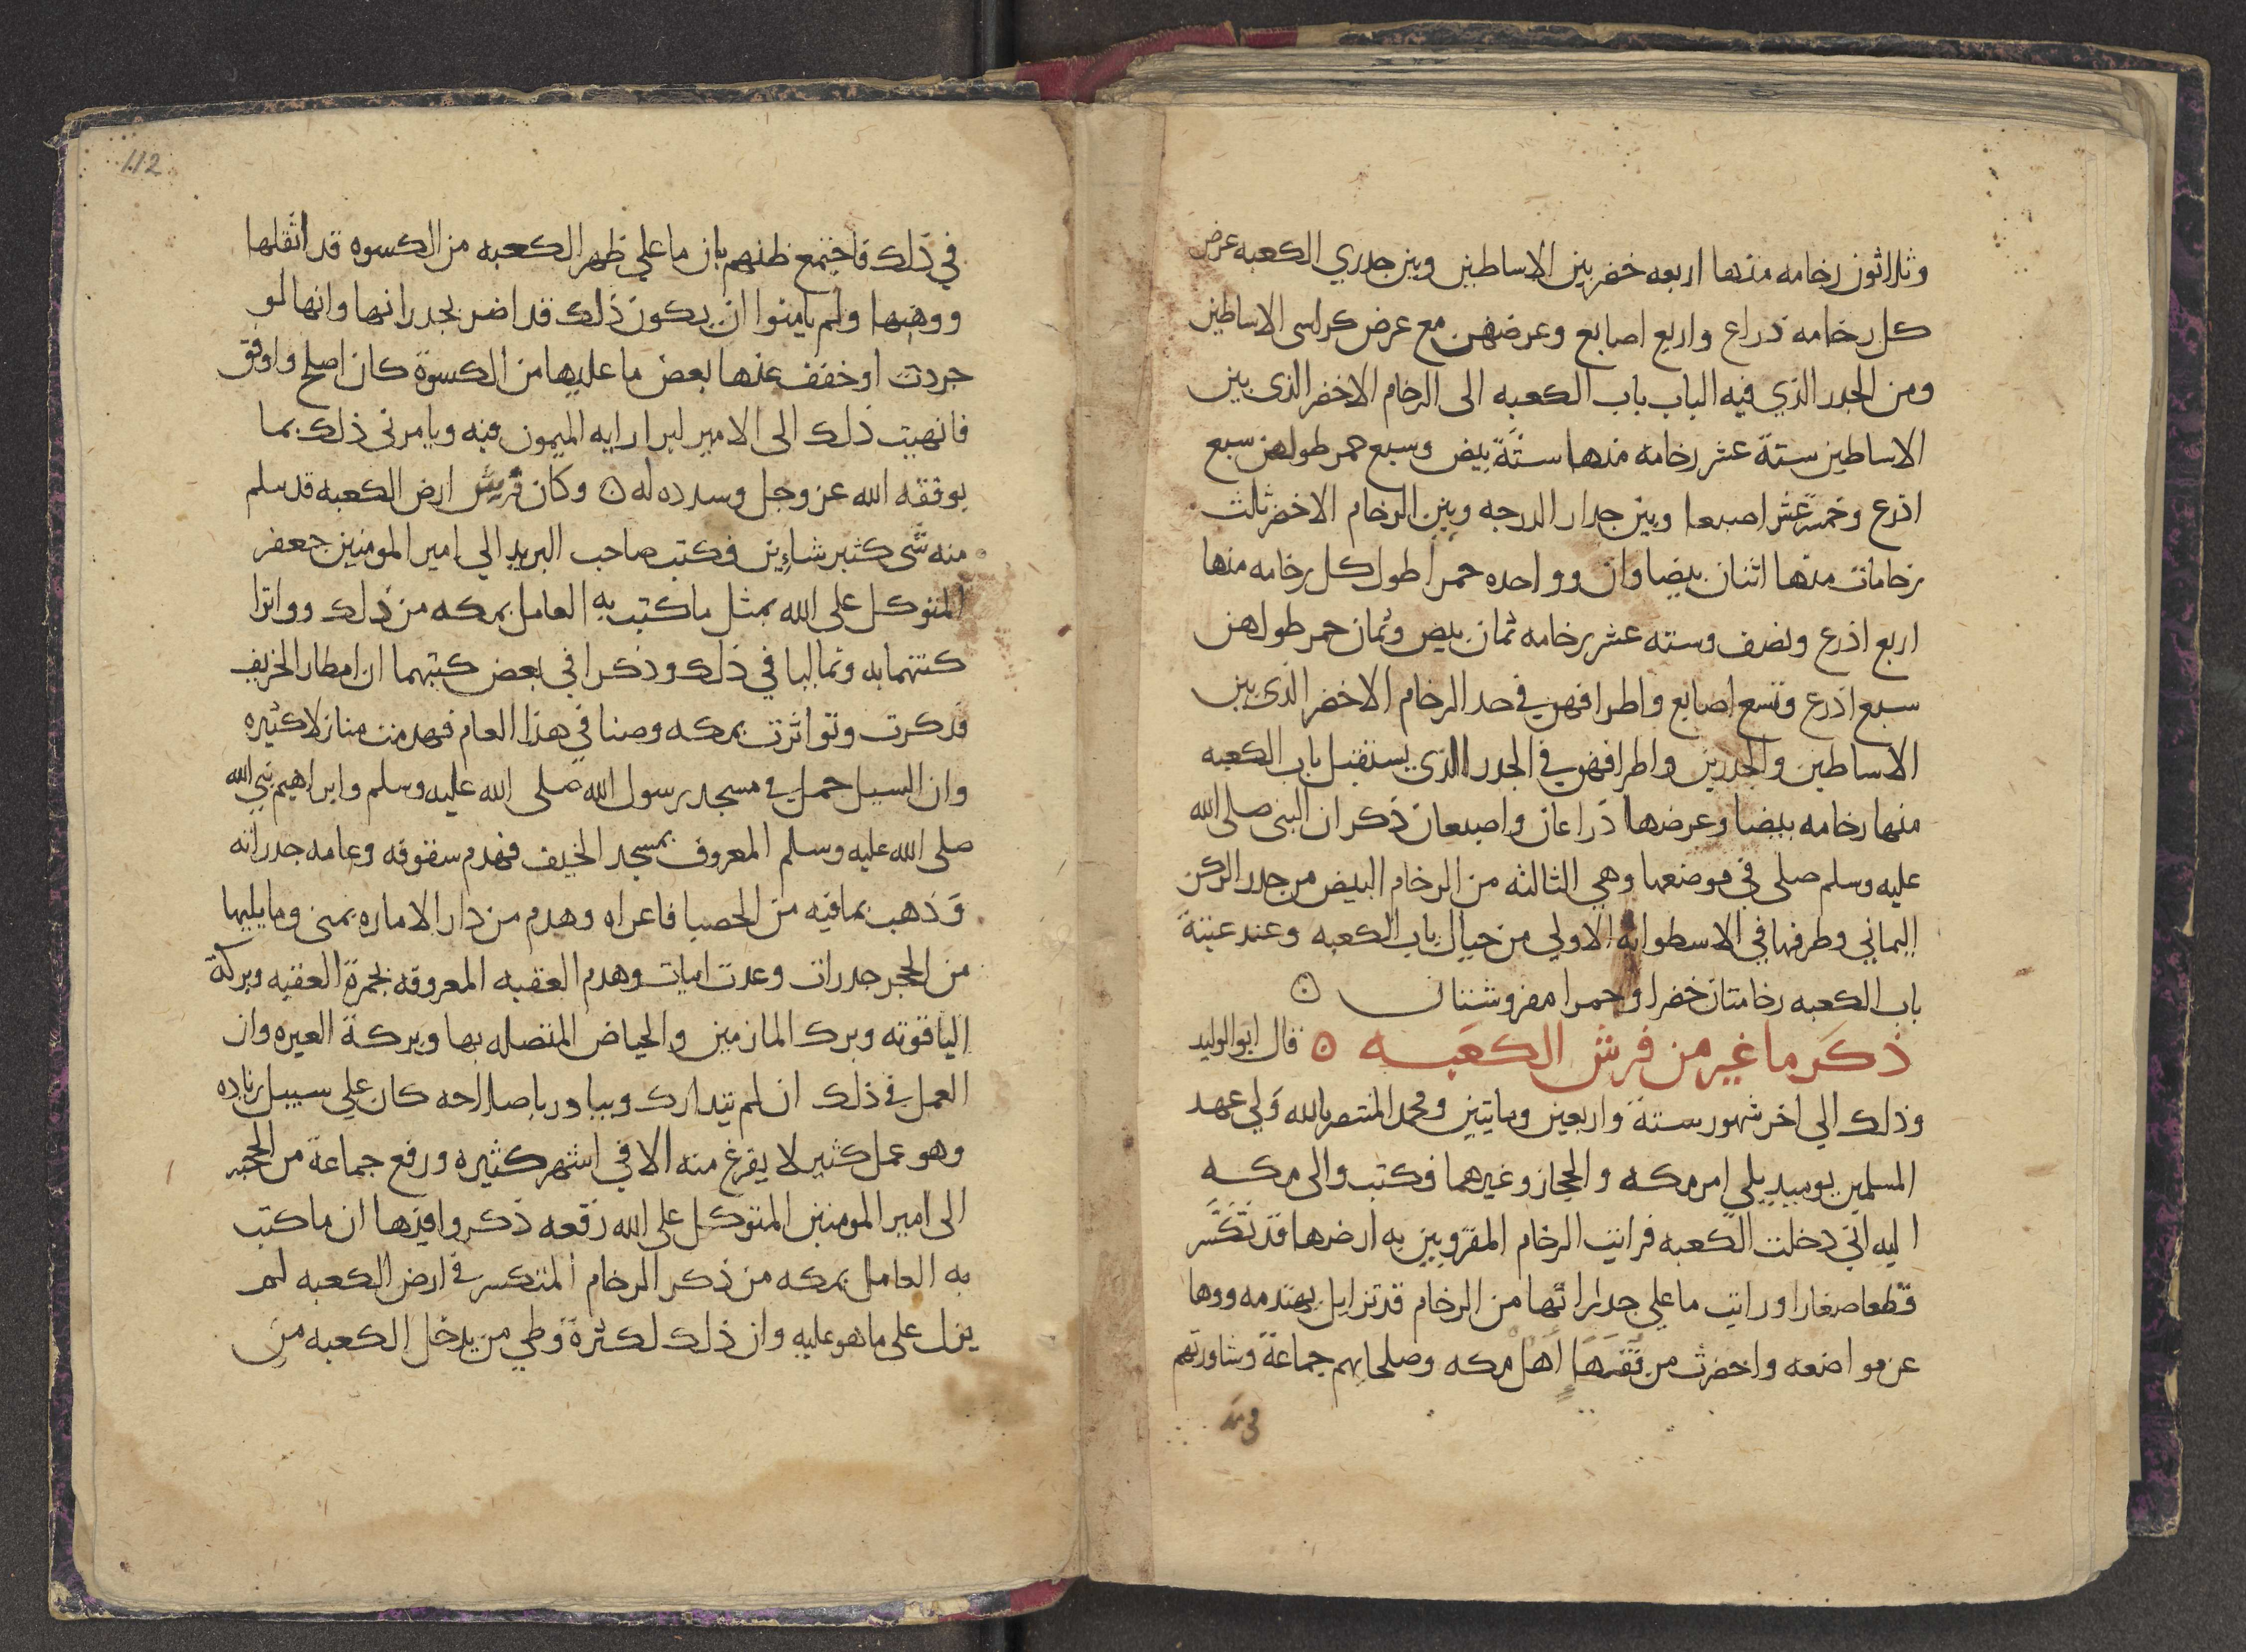 وثلاثون رخامه منها اربعه خضر بين الاساطين وبين جدري الكعبه عرض
كل رخامه ذراع واربع اصابع وعرضهن مع عرض كراسى الاساطين
ومن الجدر الذي فيه الباب باب الكعبه الى الرخام الاخضر الذى بين
الاساطين ستة عشر رخامه منها ستة بيض وسبع حمر طولهن سبع
اذرع وخمسة عشر اصبعا وبين جدار الدرجه وبين الرخام الاخضر ثلث
رخامات منها اثنان بيضاوان وواحده حمرا طول كل رخامه منها
اربع اذرع ونصف وسته عشر رخامه ثمان بيض وثمان حمر طولهن
سبع اذرع وتسع اصابع واطرافهن في حد الرخام الاخضر الذى بين
الاساطين والجدرين واطرافهن في الجدر الذى يستقبل باب الكعبه
منها رخامه بيضا وعرضها ذراعان واصبعان ذكر ان النبى صلى الله
عليه وسلم صلى في موضعها وهي الثالثه من الرخام البيض من جدر الركن
اليماني وطرفها في الاسطوانه الاولي من حيال باب الكعبه وعند عتبة
باب الكعبه رخامتان خضرا وحمرا مفروشتان ه
ذكر ما غير من فرش الكعبه ه قال ابوالوليد
وذلك الي اخر شهور ستة واربعين وماىتين ومحمد المنتصر بالله ولي عهد
المسلمين يوميد يلي امر مكه والحجاز وغيرهما فكتب والى مكه
اليه اني دخلت الكعبه فرايت الرخام المفروش به ارضها قد تكسر
قطعا صغارا ورايت ما علي جدراتها من الرخام قد تزايل تهندمه ووها
عن مواضعه واحضرت من فقها اهل مكه وصلحايهم جماعة وشاورتهم
في ذلك
في ذلك فاجتمع ظنهم بان ما علي ظهر الكعبه من الكسوه قد اثقلها
ووهنها ولم يامنوا ان يكون ذلك قد اضر بجدرانها وانها لو
جردت او خفف عنها بعض ما عليها من الكسوة كان اصلح واوفق
فانهيت ذلك الى الامير ليرا رايه الميمون فيه ويامرنى ذلك بما
يوفقه الله عز وجل وسدده له ه وكان فرش ارض الكعبه قد سلم
منه شى كثير شاىن فكتب صاحب البريد الي امير المومنين جعفر
المتوكل على الله بمثل ما كتب به العامل بمكه من ذلك وواترا
كتبهما به وتماليا في ذلك وذكرا في بعض كتبهما ان امطار الخريف
قد كرت وتواترت بمكه ومنا في هذا العام فهدمت منازلا كثيره
وان السيل حمل في مسجد رسول الله صلى الله عليه وسلم وابراهيم نبي الله
صلى الله عليه وسلم المعروف بمسجد الخيف فهدم سقوفه وعامه جدراته
وذهب بما فيه من الحصبا فاعراه وهدم من دار الاماره بمنى وما يليها
من الحجر جدرات وعدت ابيات وهدم العقبه المعروفه بجمرة العقبه وبركة
الياقوته وبرك المازمين والحياض المتصله بها وبركة العيره وان
العمل في ذلك ان لم يتدارك ويبادر باصلاحه كان علي سبيل زياده
وهو عمل كثير لا يفرغ منه الا في اشهر كثيره ورفع جماعة من الحجبه
الى امير المومنين المتوكل على الله رقعه ذكروا فيها ان ما كتب
به العامل بمكه من ذكر الرخام المتكسر في ارض الكعبه لم
يزل على ما هو عليه وان ذلك لكثرة وطي من يدخل الكعبه من
112